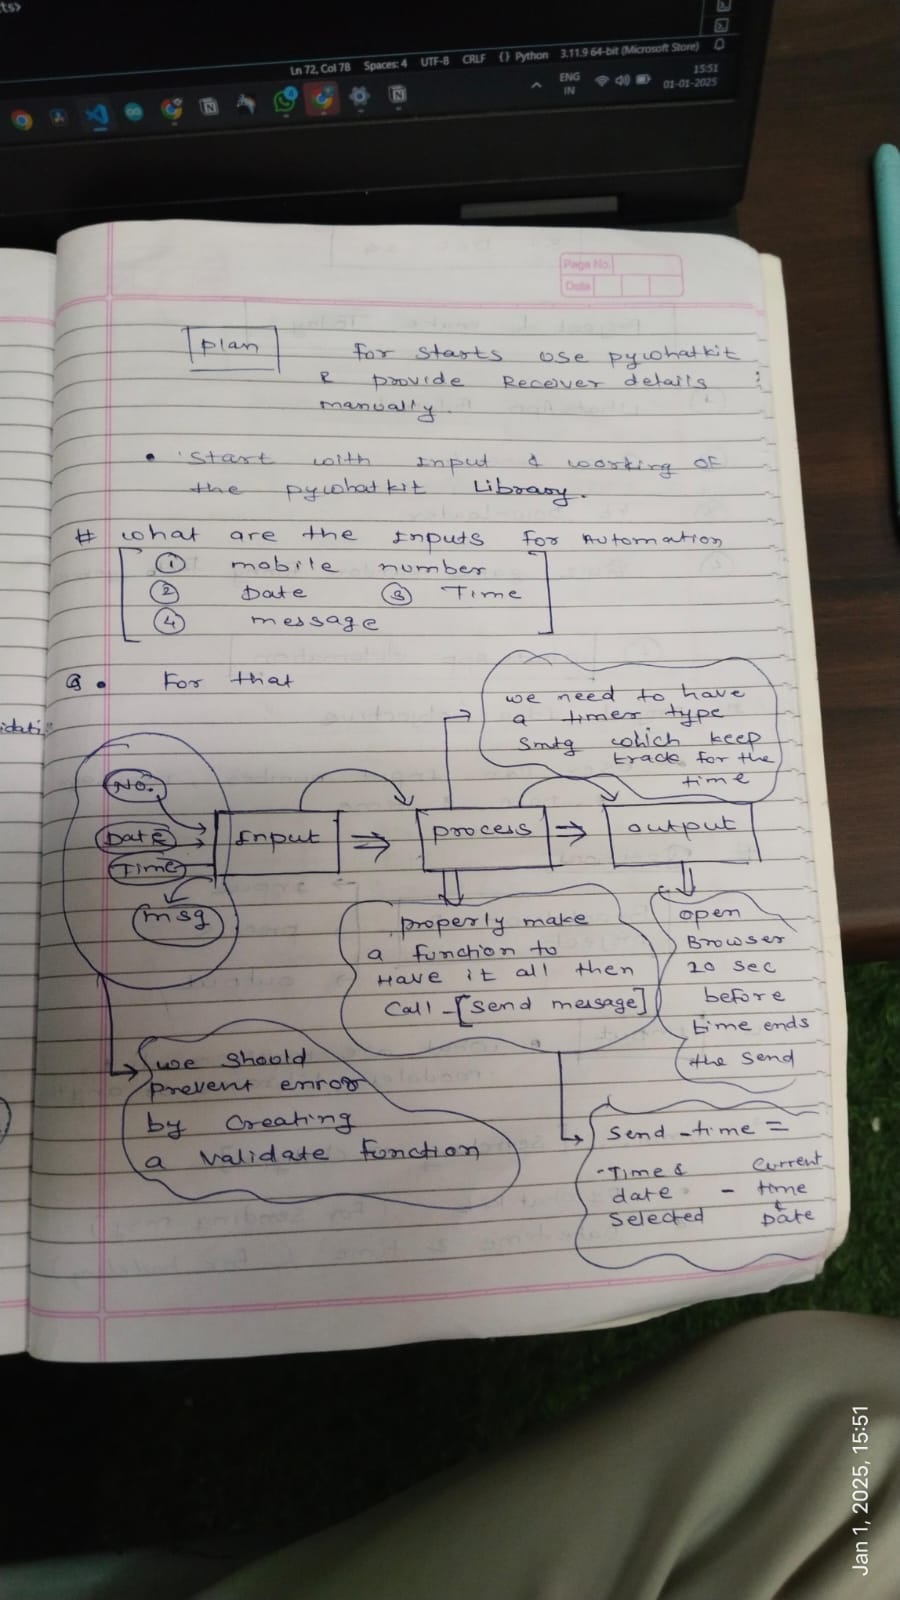 ts>
Ln 72, Col 78 Spaces: 4 UTF-8 CRLF {} Python 3.11.9 64-bit (Microsoft Store)
ENG
IN
15:51
01-01-2025
Page No.
Date
Plan
For starts use pywhatkit
& provide Recever details
manually.
• Start with Input & working of
the pywhatkit Library.
# what are the Inputs for Automation
① mobile number
② Date ③ Time
④ message
Q. For that
idati
we need to have
a timer type
Smtg which keep
track for the
time
No.
Date
Time
msg
Input ⇒ process ⇒ output
properly make
a function to
Have it all then
Call - [Send message]
open
Browser
20 sec
before
time ends
the send
we should
prevent error
by creating
a validate function
Send - time =
- Time & date selected - Current time & Date
Jan 1, 2025, 15:51